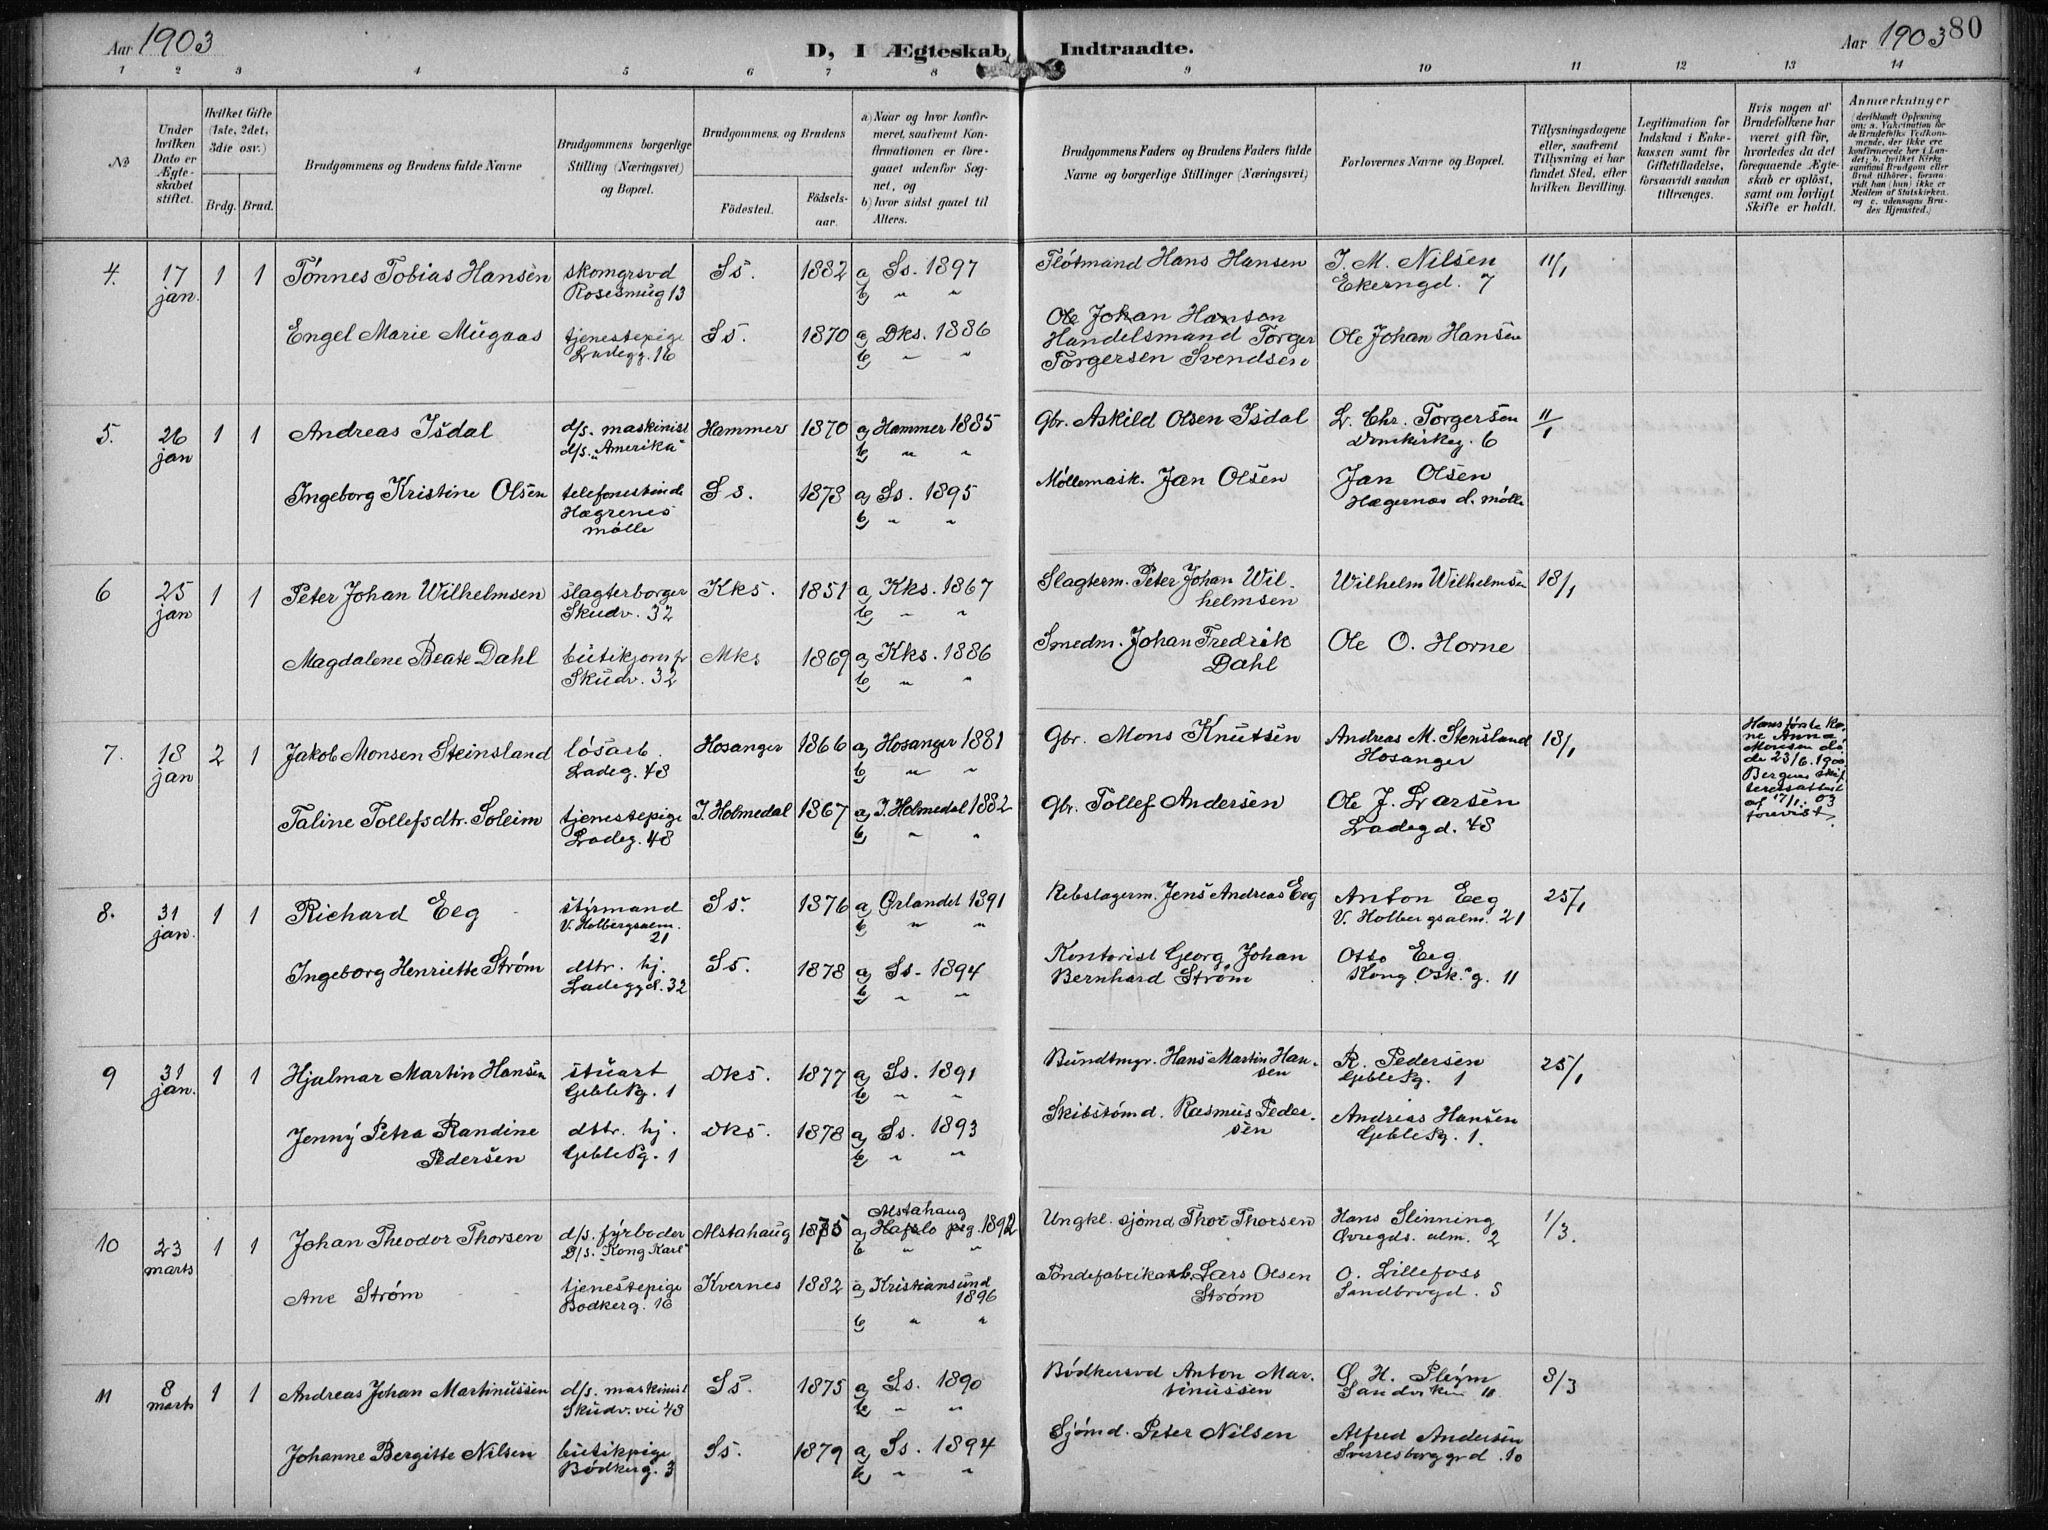 Aar 1903
D, I Ægteskab Indtraadte.
Aar 1903 80
1 2 3 4 5 6 7 8 9 10 11 12 13 14
No
Under hvilken Dato er Ægteskabet stiftet.
Hvilket Gifte (1ste, 2det, 3die osv.)
Brdg. Brud.
Brudgommens og Brudens fulde Navne
Brudgommens borgerlige Stilling (Næringsvei) og Bopæl.
Brudgommens og Brudens
Födested. Födselsaar.
a) Naar og hvor konfirmeret, saafremt Konfirmationen er foregaaet udenfor Sognet, og
b) hvor sidst gaaet til Alters.
Brudgommens Faders og Brudens Faders fulde Navne og borgerlige Stillinger (Næringsvei)
Forlovernes Navne og Bopæl.
Tillysningsdagene eller, saafremt Tillysning ei har fundet Sted, efter hvilken Bevilling.
Legitimation for Indskud i Enkekassen samt for Giftetilladelse, forsaavidt saadan tiltrænges.
Hvis nogen af Brudefolkene har været gift för, hvorledes da det foregaaende Ægteskab er oplöst, samt om lovligt Skifte er holdt.
Anmærkninger
(deriblandt Oplysning om: a. Vakcination for de Brudefolks Vedkommende, der ikke ere konfirmerede her i Landet; b. hvilket Kirkesamfund Brudgom eller Brud tilhörer, forsaavidt han (hun) ikke er Medlem af Statskirken, og c. udensogns Brudes Hjemsted.)
4. 17 jan. 1 1 Tönnes Tobias Hansen skomgrsvd Rosesmug 13 Ss. 1882 a) Ss. 1897 b) " " Flötmand Hans Hansen J. M. Nilsen Ekerngd. 7 11/1
Engel Marie Mugaas tjenestepige Ladeg. 16 Ss. 1870 a) Dks. 1886 b) " " Ole Johan Hanson Handelsmand Torger Torgersen Svendsen Ole Johan Hansen
5. 26 jan 1 1 Andreas Isdal d/s. maskinist d/s. "Amerika" Hammer 1870 a) Hammer 1885 b) " " Gbr. Askild Olsen Isdal L. Chr. Torgersen Domkirkeg. 6 11/1
Ingeborg Kristine Olsen telefonestinde Hægrenes mølle Ss. 1878 a) Ss. 1895 b) " " Møllemask. Jan Olsen Jan Olsen Hægernæs d. mølle
6 25 jan 1 1 Peter Johan Wilhelmsen slagterborger Skudv. 32 Kks. 1851 a) Kks. 1867 b) " " Slagterm. Peter Johan Wilhelmsen Wilhelm Wilhelmsen 18/1
Magdalene Beate Dahl butikjomfr Skudv. 32 Mks 1869 a) Kks. 1886 b) " " Smedm. Johan Fredrik Dahl Ole O. Horne
7. 18 jan 2 1 Jakob Monsen Steinsland lösarb. Ladeg. 48 Hosanger 1866 a) Hosanger 1881 b) " " Gbr. Mons Knutsen Andreas M. Stensland Hosanger 18/1 Hans første kone Anna Monsen døde 23/6. 1900 Bergens skifteretsattest af 17/1. 03 forevist.
Taline Tollefsdtr. Soleim tjenestepige Ladeg. 48 I. Holmedal 1867 a) I. Holmedal 1882 b) " " Gbr. Tollef Andersen Ole J. Larsen Ladegd. 48
8. 31 jan. 1 1 Richard Eeg styrmand V. Holbergsalm. 21 Ss. 1876 a) Ørlandet 1891 b) " " Rebslagerm. Jens Andreas Eeg Anton Eeg V. Holbergsalm. 21 25/1
Ingeborg Henriette Strøm dttr. hj. Ladeggd. 32 Ss. 1878 a) Ss. 1894 b) " " Kontorist Georg Johan Bernhard Strøm Otto Eeg Kong Osk. g. 11
9 31 jan. 1 1 Hjalmar Martin Hansen stuart Geblepg. 1 Dks. 1877 a) Ss. 1891 b) " " Bundtmgr. Hans Martin Hansen R. Pedersen Geblepg. 1 25/1
Jenny Petra Randine Pedersen dttr. hj. Geblepg. 1 Dks. 1878 a) Ss. 1893 b) " " Skibstømd. Rasmus Pedersen Andreas Hansen Geblepg. 1.
10 23 marts 1 1 Johan Theodor Thorsen d/s. fyrböder D/s. "Kong Karl" Alstahaug 1875 a) Alstahaug Hafslo pg. 1892 b) " " Ungkl. sjömd Thor Thorsen Hans Slinning Øvregds. alm. 2 1/3.
Ane Strøm tjenestepige Bødkerg. 16 Kvernes 1882 a) Kristiansund 1896 b) " " Töndefabrikarb. Lars Olsen Strøm O. Lillefoss Sandbrogd. 5
11 8 marts 1 1 Andreas Johan Martinussen d/s. maskinist Skudv. vei 48 Ss. 1875 a) Ss. 1890 b) " " Bödkersvd Anton Martinussen H. Pleym Sandviken 8/3
Johanne Bergitte Nilsen butikpige Bødkerg. 3 Ss. 1879 a) Ss. 1894 b) " " Sjömd. Peter Nilsen Alfred Andersen Sverresborggrd. 10